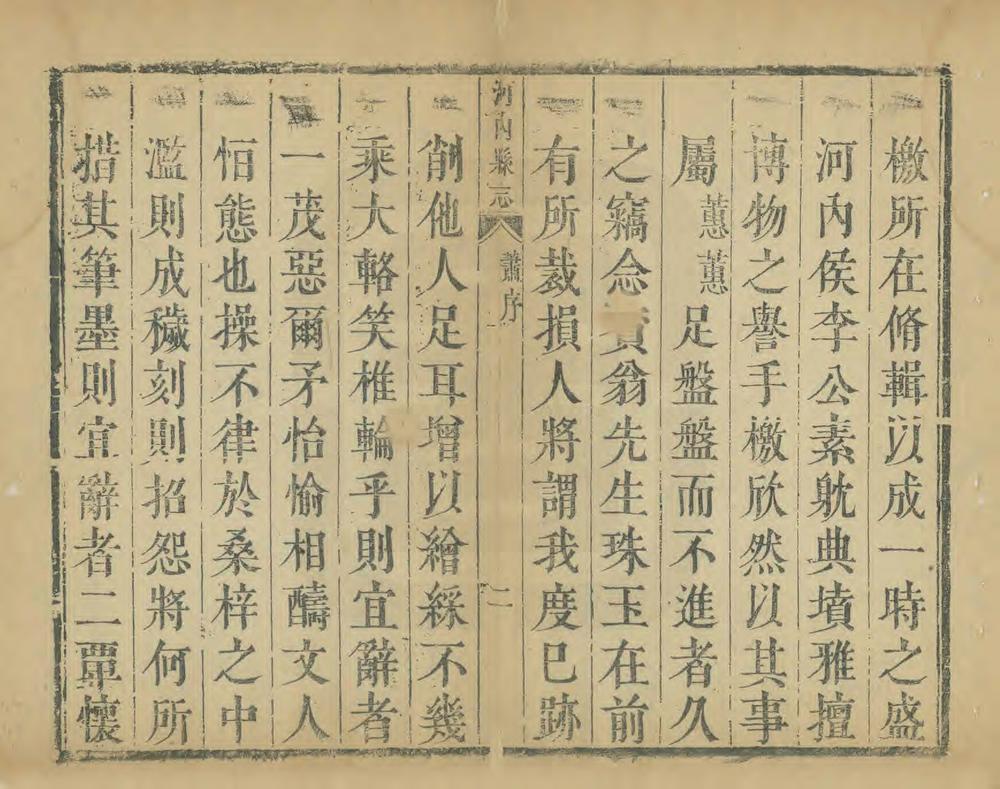 檄所在脩輯以成一時之盛
河內侯李公素躭典墳雅擅
博物之譽手檄欣然以其事
屬蕙蕙足盤盤而不進者久
之竊念翁先生珠玉在前
有所裁損人將謂我度已跡
河內縣志 蕭序 二
削他人足耳增以繪綵不幾
乘大輅笑椎輪乎則宜辭者
一茂惡爾矛怡愉相醻文人
恒態也操不律於桑梓之中
濫則成穢刻則招怨將何所
措其筆墨則宜辭者二覃懷